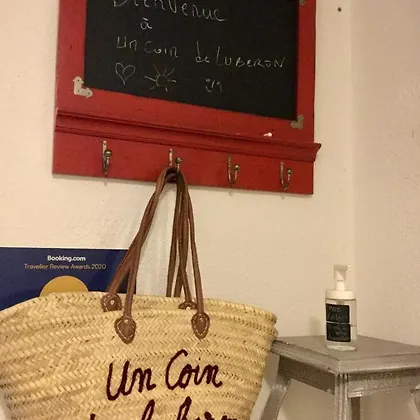 Bienvenue
à
un coin de LUBERON
Booking.com
Traveller Review Awards 2020
Un Coin